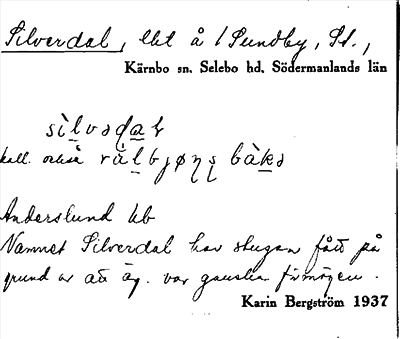 Silverdal, lht å 1 Sundby, St.,
Kärnbo sn. Selebo hd. Södermanlands län
sìlvədạḷ
kall. också rålbjønș bàkə
Anderslund lht
Namnet Silverdal har stugan fått på
grund av att äg. var ganska förmögen.
Karin Bergström 1937